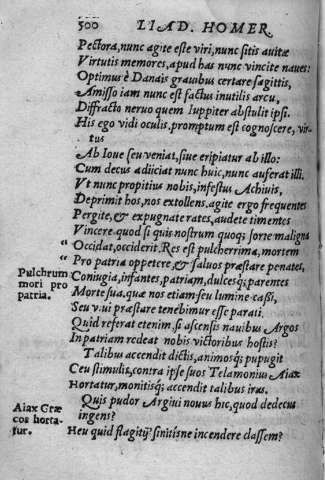 500 LIAD. HOMER
Pectora, nunc agite este viri, nunc sitis avitæ
Virtutis memores, apud has nunc vincite naues:
Optimus è Danais grauibus certare sagittis,
Amisso iam nunc est factus inutilis arcu,
Diffracto neruo quem Iuppiter abstulit ipsi.
His ego vidi oculis, promptum est cognoscere, vir-
tus
Ab Ioue seu veniat, siue eripiatur ab illo:
Cum decus adiiciat nunc huic, nunc auferat illi,
Vt nunc propitius nobis, infestus Achiuis,
Deprimit hos, nos extollens. agite ergo frequentes
Pergite, & expugnate rates, audete timentes
Vincere. quod si quis nostrum quoq; sorte maligna
“ Occidat, occiderit. Res est pulcherrima, mortem
“ Pro patria oppetere, & saluos præstare penates,
Pulchrum
mori pro
patria.
Coniugia, infantes, patriam, dulcesq; parentes
Morte sua. qua nos etiam seu lumine cassi,
Seu viui præstare tenebimur esse parati.
Quid referat etenim, si ascensis nauibus Argos
In patriam redeat nobis victoribus hostis?
Talibus accendit dictis, animosq; pupugit
Ceu stimulis, contra ipse suos Telamonius Aiax
Hortatur, monitisq; accendit talibus iras.
Aiax Græ
cos horta-
tur.
Quis pudor Argiui nouus hic, quod dedecus
ingens?
Heu quid flagitij? sinitisne incendere classem?